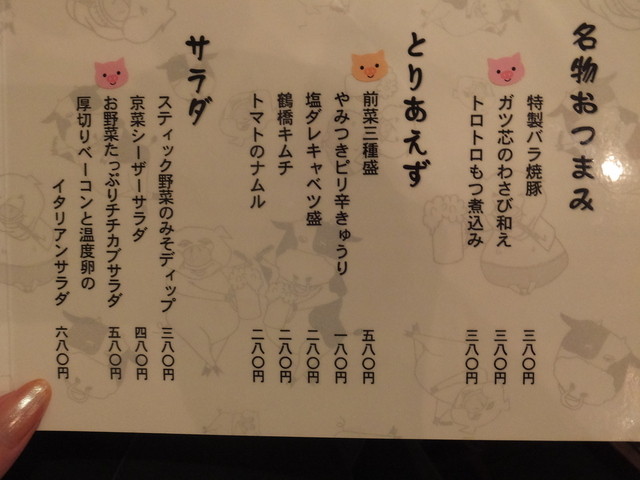 名物おつまみ
特製バラ焼豚 三八〇円
ガツ芯のわさび和え 三八〇円
トロトロもつ煮込み 三八〇円
とりあえず
前菜三種盛 五八〇円
やみつきピリ辛きゅうり 一八〇円
塩ダレキャベツ盛 二八〇円
鶴橋キムチ 二八〇円
トマトのナムル 二八〇円
サラダ
スティック野菜のみそディップ 三八〇円
京菜シーザーサラダ 四八〇円
お野菜たっぷりチチカブサラダ 五八〇円
厚切りベーコンと温度卵の
イタリアンサラダ 六八〇円